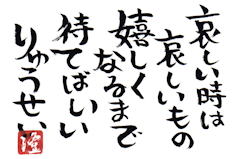 哀しい時は
哀しいもの
嬉しく
なるまで
待てばいい
りゅうせい